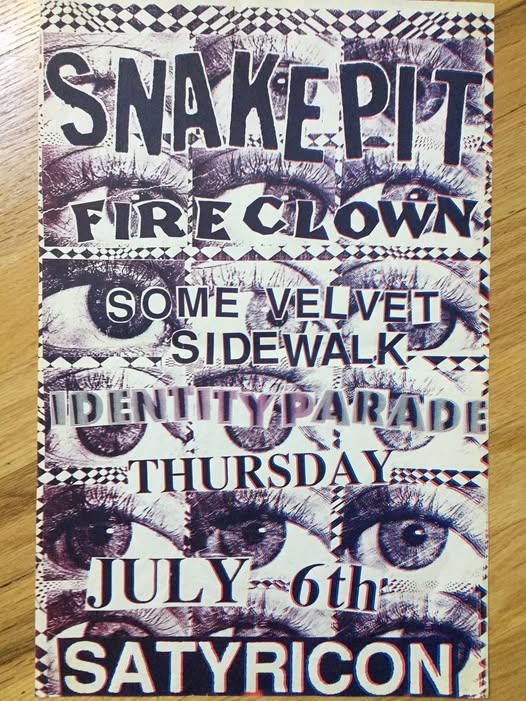 SNAKEPIT
FIRECLOWN
SOME VELVET
SIDEWALK
IDENTITY PARADE
THURSDAY
JULY 6th
SATYRICON